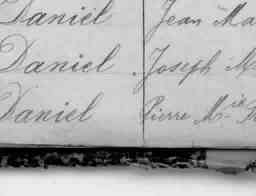 Daniel Jean Ma
Daniel Joseph M
Daniel Pierre M.ie